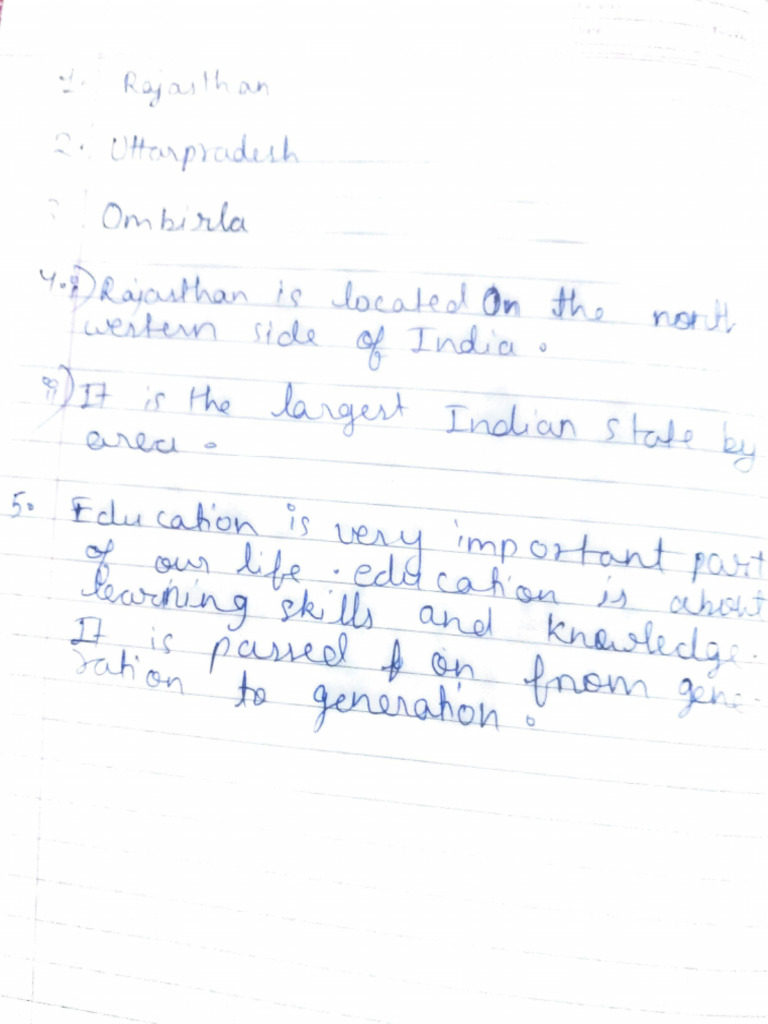 1. Rajasthan
2. Uttarpradesh
Ombirla
4. i) Rajasthan is located On the north
western side of India.
ii) It is the largest Indian state by
area.
5. Education is very important part
of our life. education is about
learning skills and knowledge.
It is passed on from gene-
ration to generation.